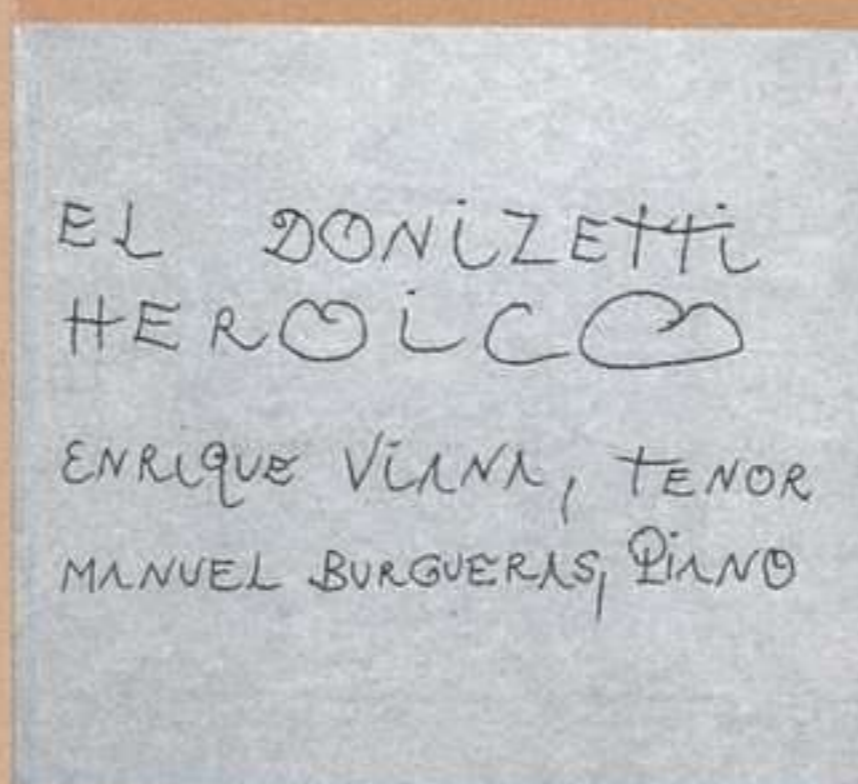 EL DONiZETTi
HEROiCO
ENRIQUE ViANA, TENOR
MANUEL BURGUERAS, PiANO